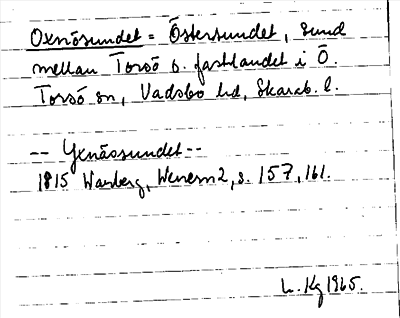 Oxnösundet = Östersundet, sund
mellan Torsö o. fastlandet i Ö.
Torsö sn, Vadsbo hd, Skarab. l.
-- Yxnässundet --
1815 Warberg, Wenern 2, s. 157, 161.
Kg 1965.